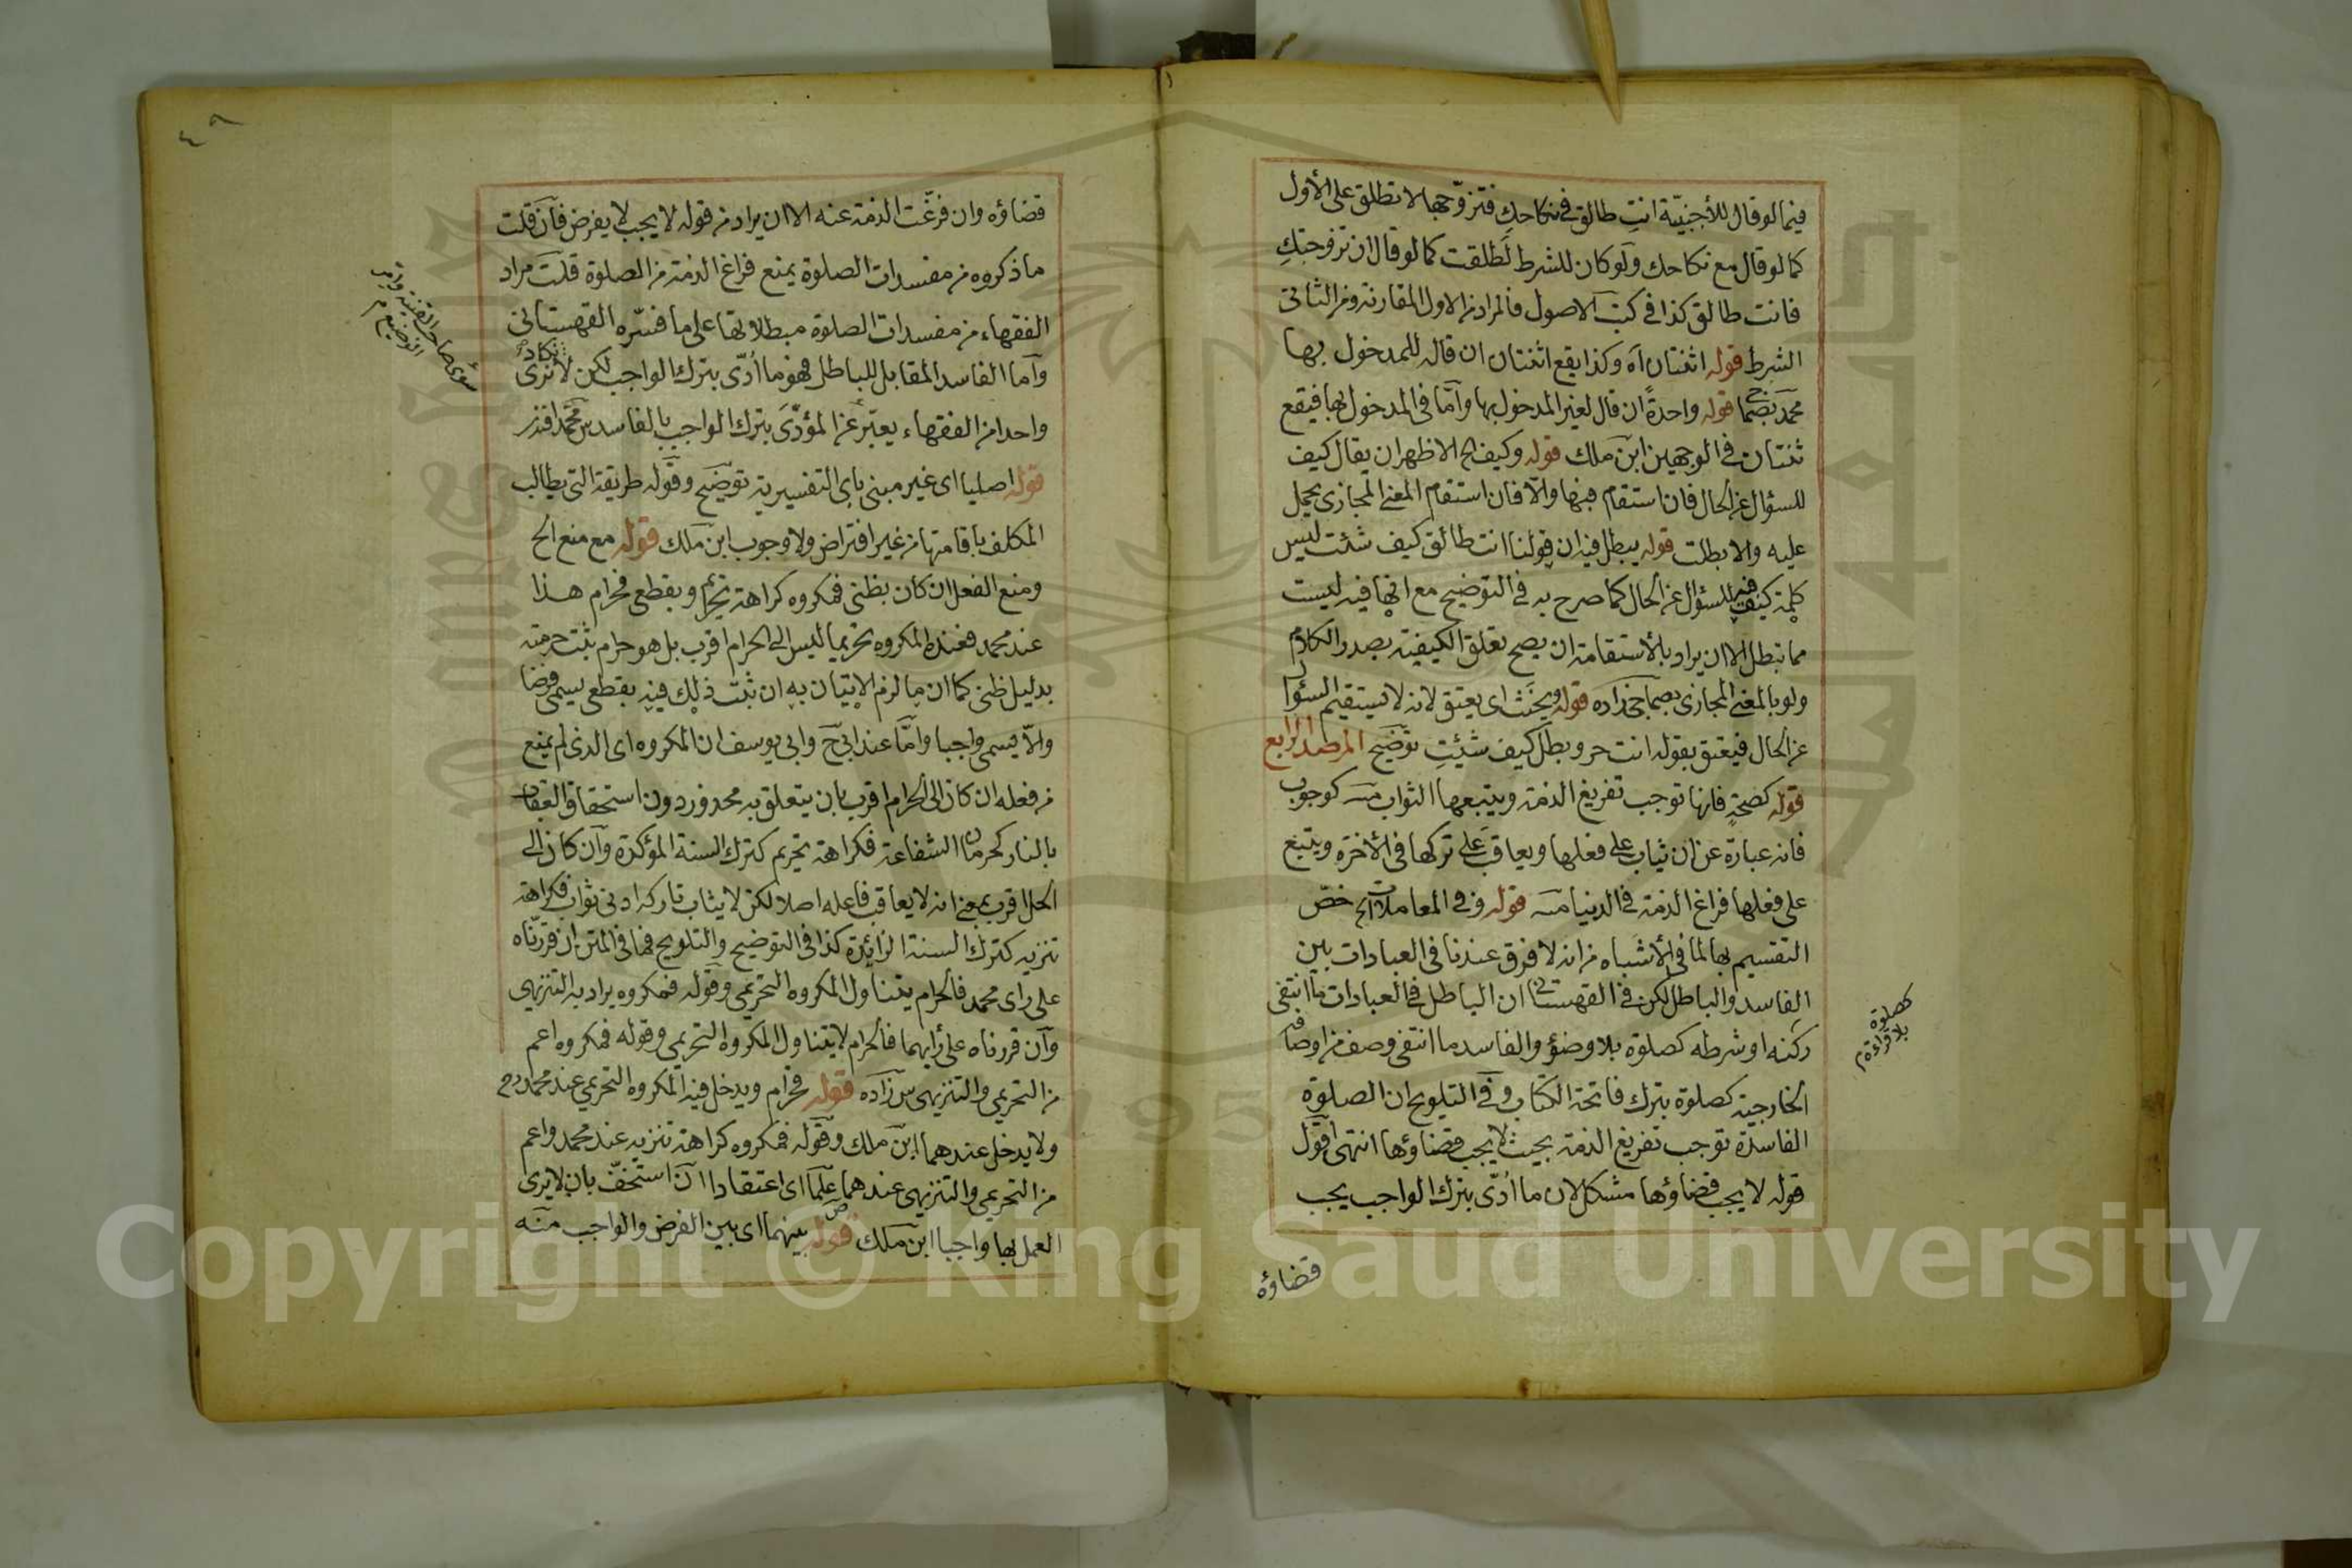 فيما لو قال للأجنبيّة انتِ طالق في نكاحكِ فتزوّجها لا تطلق على الأول
كما لو قال مع نكاحك ولو كان للشرط لطلقت كما لو قال ان تزوجتكِ
فانت طالق كذا في كتب الاصول فالمراد من الاول المقارنة ومن الثاني
الشرط قوله اثنتان اه وكذا يقع اثنتان ان قاله للمدخول بها
محمد قوله واحدةً ان قال لغير المدخول بها وأمّا في المدخول بها فيقع
ثنتان في الوجهين ابن ملك قوله وكيف الخ الاظهر ان يقال كيف
للسؤال عن الحال فان استقام فبها والّا فان استقام المعنى المجازي يحمل
عليه والا بطلت قوله يبطل فيه ان قولنا انت طالق كيف شئت ليس
كلمة كيف فيه للسؤال عن الحال كما صرح به في التوضيح مع انها فيه ليست
مما تبطل الا ان يراد بالأستقامة ان يصح تعلق الكيفية بصدر الكلام
ولو بالمعنى المجازي قوله ويحنث اى يعتق لانه لا يستقيم السؤال
عن الحال فيعتق بقوله انت حر وبطل كيف شئتِ توضيح المرصد الرابع
قوله كصحةٍ فانها توجب تفريغ الذمة ويتبعها الثواب منه كوجوب
فانه عبارة عن ان يثاب على فعلها ويعاقب على تركها في الأخرة ويتبع
على فعلها فراغ الذمة في الدنيا منه قوله وفي المعاملات الخ خصّ
التقسيم بها لما في الأشباه من انه لا فرق عندنا في العبادات بين
الفاسد والباطل لكن في القهستاني ان الباطل في العبادات ما انتفى
ركنه او شرطه كصلوة بلا وضؤ والفاسد ما انتفى وصف من اوصافه
كصلوة
بلا قراءة م
الخارجية كصلوة بترك فاتحة الكتاب وفي التلويح ان الصلوة
الفاسدة توجب تفريغ الذمة بحيث لا يجب قضاؤها انتهى اقول
قوله لا يجب قضاؤها مشكل لان ما أدّى بترك الواجب يجب
قضاؤه
٤٩
قضاؤه وان فرغّت الذمة عنه الا ان يراد من قوله لا يجب لا يفرض فأن قلت
ما ذكروه من مفسدات الصلوة يمنع فراغ الذمة من الصلوة قلت مراد
الفقهاء من مفسدات الصلوة مبطلاتها على ما فسّره القهستاني
وأما الفاسد المقابل للباطل فهو ما أدّى بترك الواجب لكن لا نرى
واحدا من الفقهاء يعبّر عن المؤدّى بترك الواجب بالفاسد
قوله اصليا اى غير مبنى باى التفسيرية توضيح وقوله طريقة التي يطالب
المكلف باقامتها من غير افتراض ولا وجوب ابن ملك قوله مع منع الخ
ومنع الفعل ان كان بظني فمكروه كراهة تحريم وبقطعى فحرام هذا
عند محمد فعنده المكروه تحريما ليس الى الحرام اقرب بل هو حرام ثبت حرمته
بدليل ظني كما ان ما لزم الاتيان به ان ثبت ذلك فيه بقطعى يسمى فرضا
والّا يسمى واجبا وأمّا عند ابي ح وابي يوسف ان المكروه اى الذي لم يمنع
من فعله ان كان الى الحرام اقرب بان يتعلق به محذور دون استحقاق العقاب
بالنار كحرمان الشفاعة فكراهة تحريم كترك السنة المؤكدة وأن كان الى
الحل اقرب بمعنى انه لا يعاقب فاعله اصلا لكن لا يثاب تاركه ادنى ثواب فكراهة
تنزيه كترك السنة الزائدة كذا في التوضيح والتلويح فما في المتن ان قررناه
على راى محمد فالحرام يتناول المكروه التحريمي وقوله فمكروه يراد به التنزيهي
وأن قررناه على رأيهما فالحرام لا يتناول المكروه التحريمي وقوله فمكروه اعم
من التحريمي والتنزيهي قوله فحرام ويدخل فيه المكروه التحريمي عند محمد رح
ولا يدخل عندهما ابن ملك وقوله فمكروه كراهة تنزيه عند محمد واعم
من التحريمي والتنزيهي عندهما علما اى اعتقادا أن استخفّ بان لا يرى
العمل بها واجبا ابن ملك قوله بينهما اى بين الفرض والواجب منه
Copyright © King Saud University